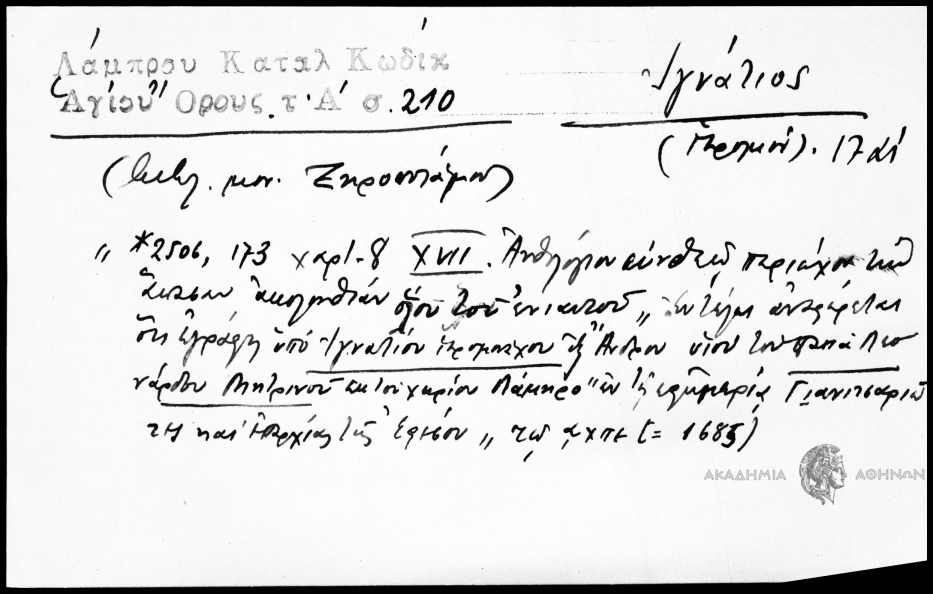 Λάμπρου Καταλ Κωδίκ
Ἁγίου Ὄρους τ. Α΄ σ. 210
Ἰγνάτιος
(Ἱερομόν). 17 αἰ
(Βιβλ. μον. Ξηροποτάμου)
„ *2506, 173 χαρτ. 8 XVII. Ἀνθολόγιον σύνθετον περιέχον τὴν
ἅπασαν ἀκολουθίαν ὅλου τοῦ ἐνιαυτοῦ „ Ἐν τέλει ἀναφέρεται
ὅτι ἐγράφη ὑπὸ Ἰγνατίου ἱερομονάχου ἐξ Ἄνδρου υἱοῦ τοῦ παπᾶ Λεο
νάρδου ἐκ τοῦ χωρίου Λάμηρο" ἐν τῇ ἐφημερία Γιανιτσαριώ
τη καὶ ἐπαρχίας τῆς Ἐφέσου „ τῷ ͵αχπε (= 1685)
ΑΚΑΔΗΜΙΑ ΑΘΗΝΩΝ